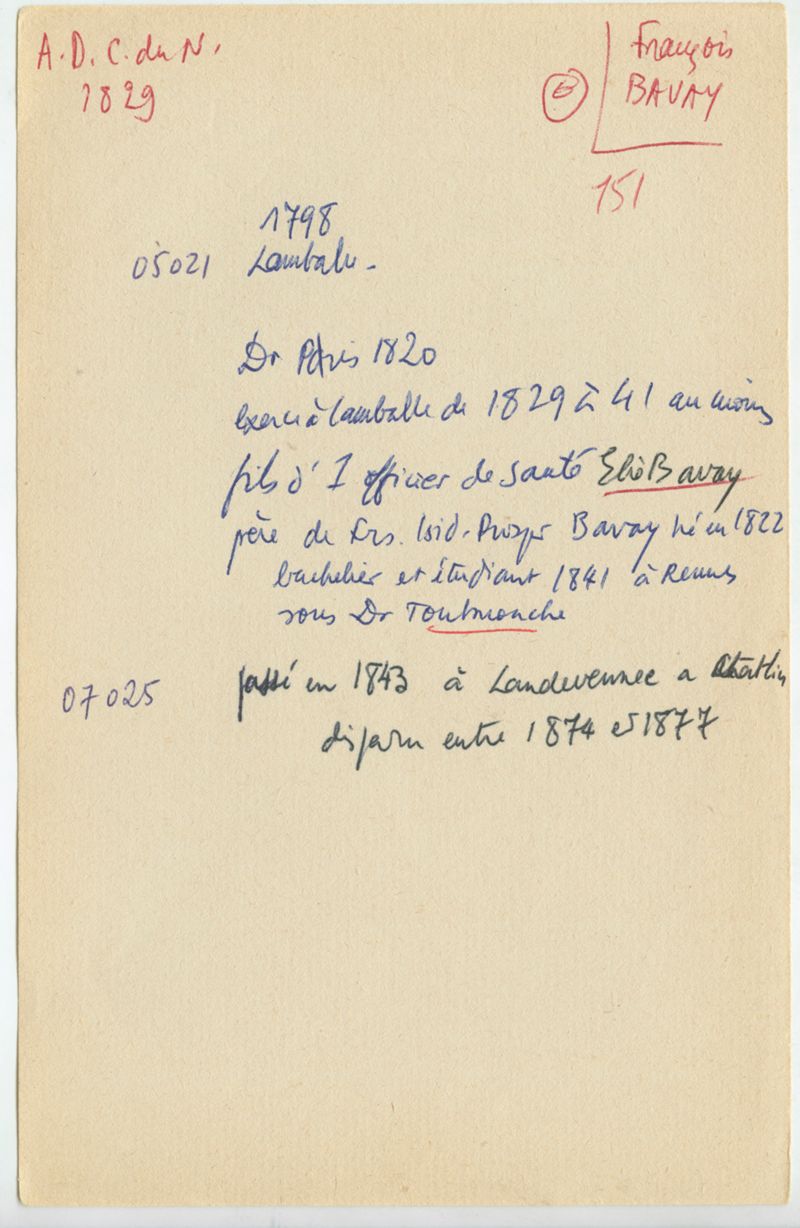 A.D.C.du N.
1829
François
BAVAY
151
1798
05021 Lamballe.
Dr Paris 1820
exerce à Lamballe de 1829 à 41 au moins
fils d'1 officier de santé Elie Bavay
père de Frs. Isid. Prosper Bavay né en 1822
bachelier et étudiant 1841 à Rennes
sous Dr Toulmouche
07025 passé en 1843 à Landevennec a
disparu entre 1874 et 1877